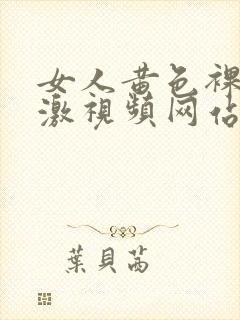 女人黄色裸
激視頻网佔
葉貝茜